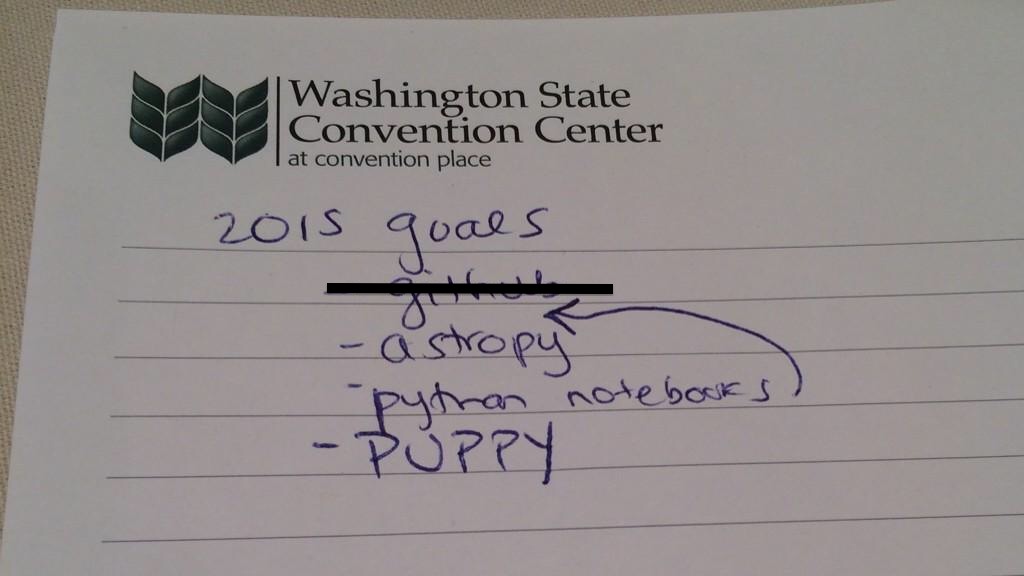 Washington State
Convention Center
at convention place
2015 goals
github
- astropy
- python notebooks
- PUPPY